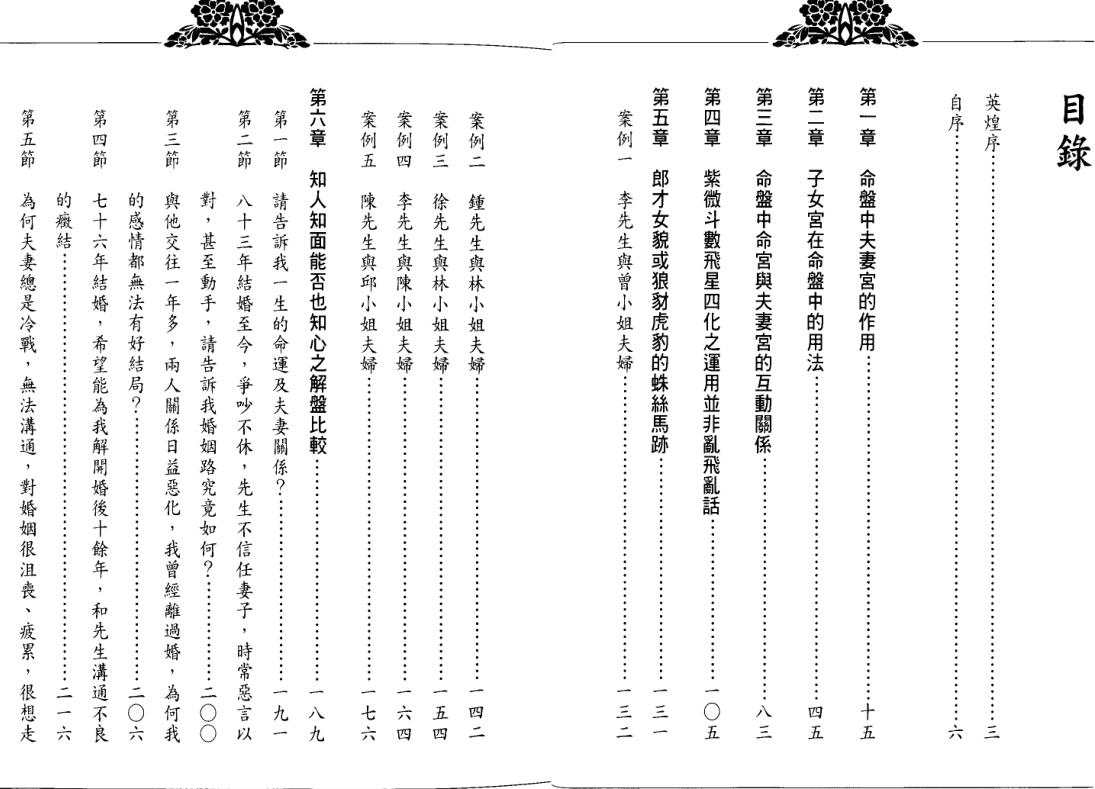 目錄
英煌序……三
自序……六
第一章　命盤中夫妻宮的作用……十五
第二章　子女宮在命盤中的用法……四五
第三章　命盤中命宮與夫妻宮的互動關係……八三
第四章　紫微斗數飛星四化之運用並非亂飛亂話……一〇五
第五章　郎才女貌或狼豺虎豹的蛛絲馬跡……一三一
案例一　李先生與曾小姐夫婦……一三二
案例二　鍾先生與林小姐夫婦……一四二
案例三　徐先生與林小姐夫婦……一五四
案例四　李先生與陳小姐夫婦……一六四
案例五　陳先生與邱小姐夫婦……一七六
第六章　知人知面能否也知心之解盤比較……一八九
第一節　請告訴我一生的命運及夫妻關係？……一九一
第二節　八十三年結婚至今，爭吵不休，先生不信任妻子，時常惡言以
對，甚至動手，請告訴我婚姻路究竟如何？……二〇〇
第三節　與他交往一年多，兩人關係日益惡化，我曾經離過婚，為何我
的感情都無法有好結局？……二〇六
第四節　七十六年結婚，希望能為我解開婚後十餘年，和先生溝通不良
的癥結……二一六
第五節　為何夫妻總是冷戰，無法溝通，對婚姻很沮喪、疲累，很想走